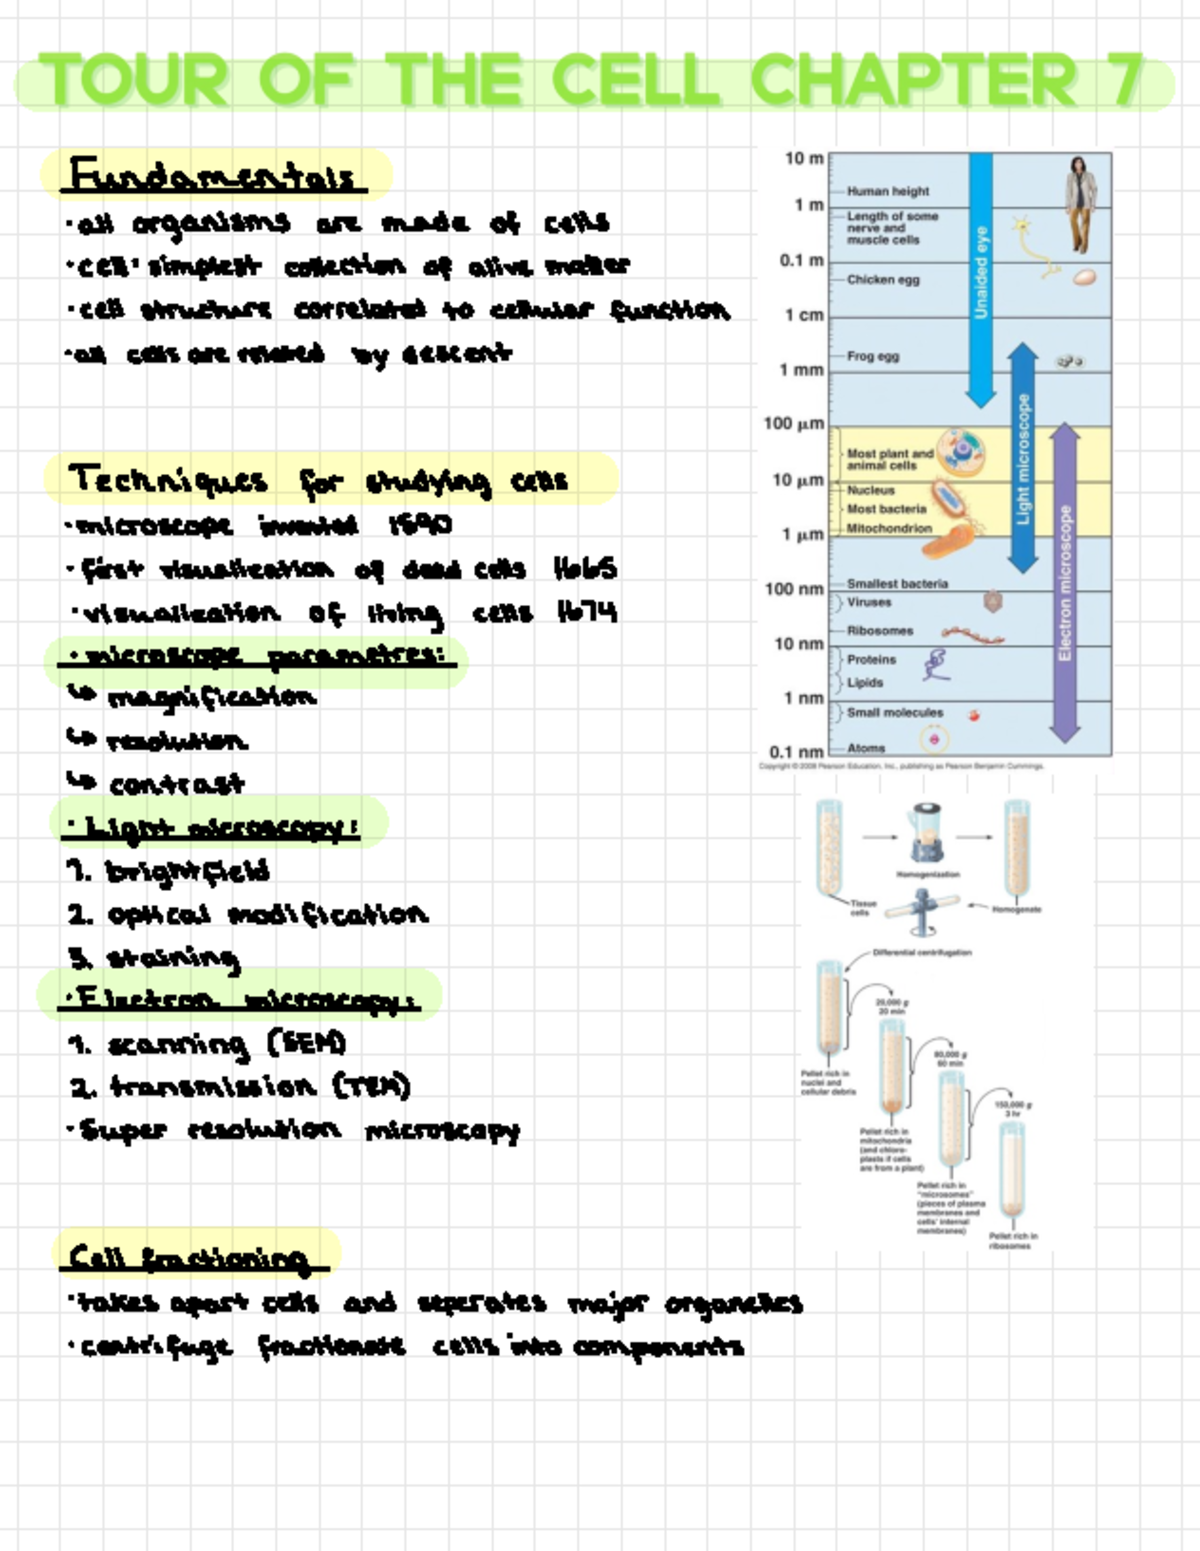 TOUR OF THE CELL CHAPTER 7
Fundamentals
·all organisms are made of cells
·cell: simplest collection of alive matter
·cell structure correlated to cellular function
·all cells are related by descent
Techniques for studying cells
·microscope invented 1590
·first visualization of dead cells 1665
·visualization of living cells 1674
·microscope parametres:
↳ magnification
↳ resolution
↳ contrast
·Light microscopy:
1. brightfield
2. optical modification
3. staining
·Electron microscopy:
1. scanning (SEM)
2. transmission (TEM)
·Super resolution microscopy
Cell fractioning
·takes apart cells and seperates major organelles
·centrifuge fractionate cells into components
10 m
Human height
1 m
Length of some
nerve and
muscle cells
0.1 m
Chicken egg
1 cm
Frog egg
1 mm
100 µm
Most plant and
animal cells
10 µm
Nucleus
Most bacteria
Mitochondrion
1 µm
Smallest bacteria
100 nm
Viruses
Ribosomes
10 nm
Proteins
Lipids
1 nm
Small molecules
0.1 nm
Atoms
Unaided eye
Light microscope
Electron microscope
Copyright © 2008 Pearson Education, Inc., publishing as Pearson Benjamin Cummings.
Homogenization
Tissue
cells
Homogenate
Differential centrifugation
20,000 g
20 min
80,000 g
60 min
150,000 g
3 hr
Pellet rich in
nuclei and
cellular debris
Pellet rich in
mitochondria
(and chloro-
plasts if cells
are from a plant)
Pellet rich in
"microsomes"
(pieces of plasma
membranes and
cells' internal
membranes)
Pellet rich in
ribosomes